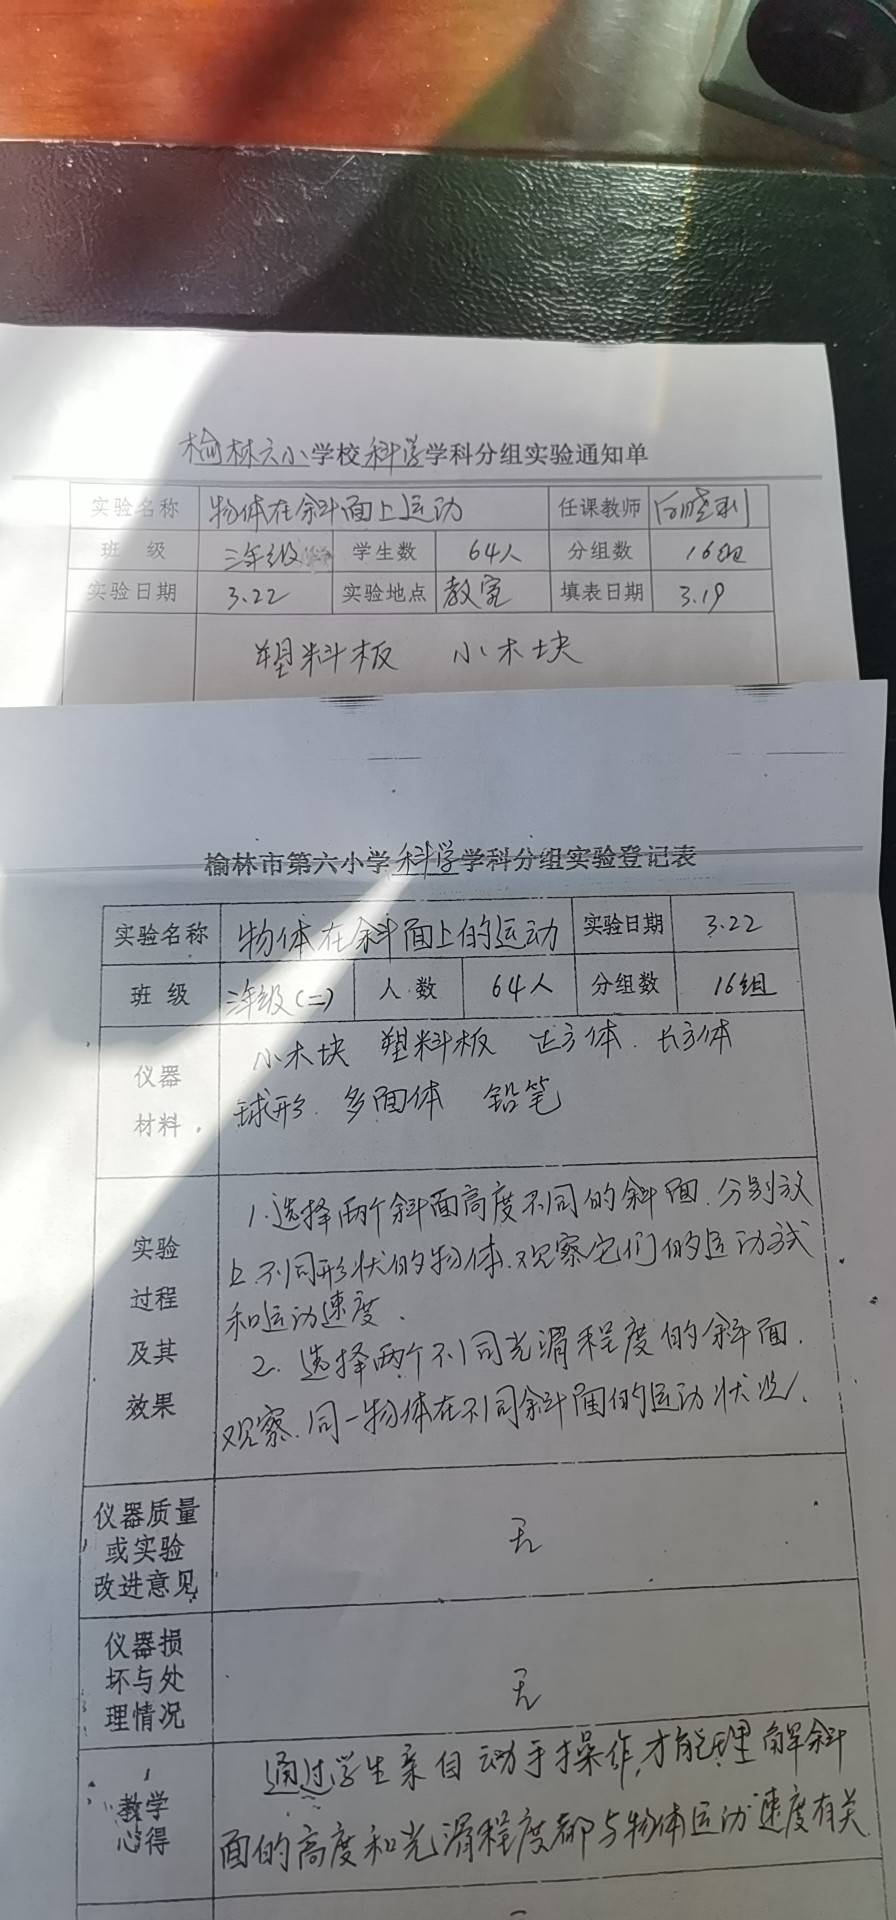 榆林六小学校科学学科分组实验通知单
实验名称 物体在斜面上运动 任课教师
班 级 三年级 学生数 64人 分组数 16组
实验日期 3.22 实验地点 教室 填表日期 3.19
塑料板 小木块
榆林市第六小学科学学科分组实验登记表
实验名称 物体在斜面上的运动 实验日期 3.22
班 级 三年级(二) 人数 64人 分组数 16组
仪器
材料
小木块 塑料板 正方体. 长方体
球形. 多面体 铅笔
实验
过程
及其
效果
1.选择两个斜面高度不同的斜面.分别放
上不同形状的物体.观察它们的运动方式
和运动速度.
2. 选择两个不同光滑程度的斜面.
观察.同一物体在不同斜面的运动状况.
仪器质量
或实验
改进意见
无
仪器损
坏与处
理情况
无
教学
心得
通过学生亲自动手操作,才能理解斜
面的高度和光滑程度都与物体运动速度有关